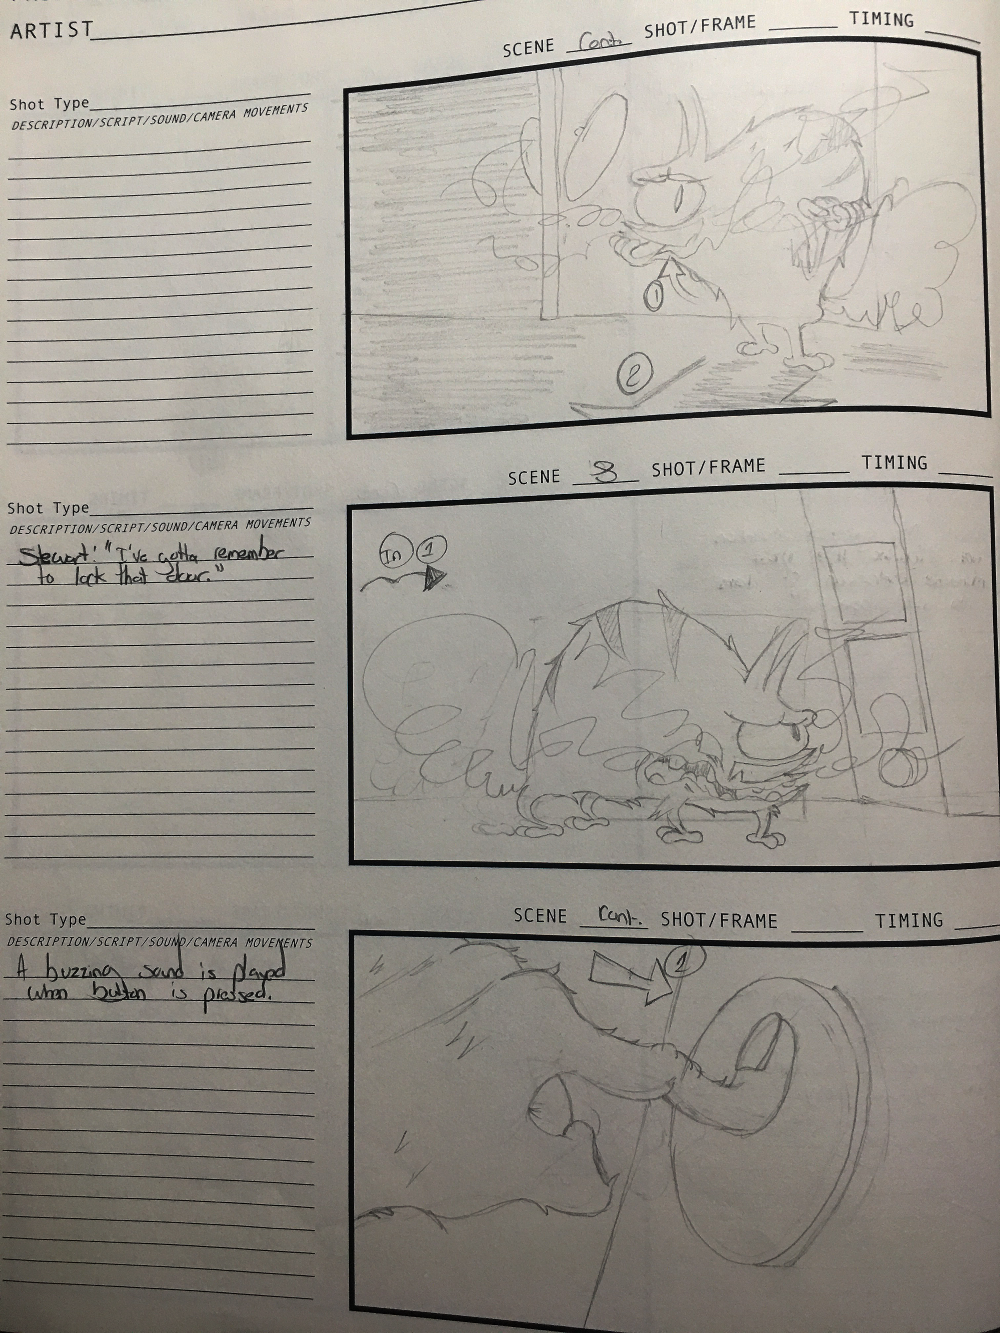 ARTIST
SCENE Cont. SHOT/FRAME TIMING
Shot Type
DESCRIPTION/SCRIPT/SOUND/CAMERA MOVEMENTS
1
2
SCENE 8 SHOT/FRAME TIMING
Shot Type
DESCRIPTION/SCRIPT/SOUND/CAMERA MOVEMENTS
Stewart: "I've gotta remember
to lock that door."
In 1
SCENE Cont. SHOT/FRAME TIMING
Shot Type
DESCRIPTION/SCRIPT/SOUND/CAMERA MOVEMENTS
A buzzing sound is played
when button is pressed.
1